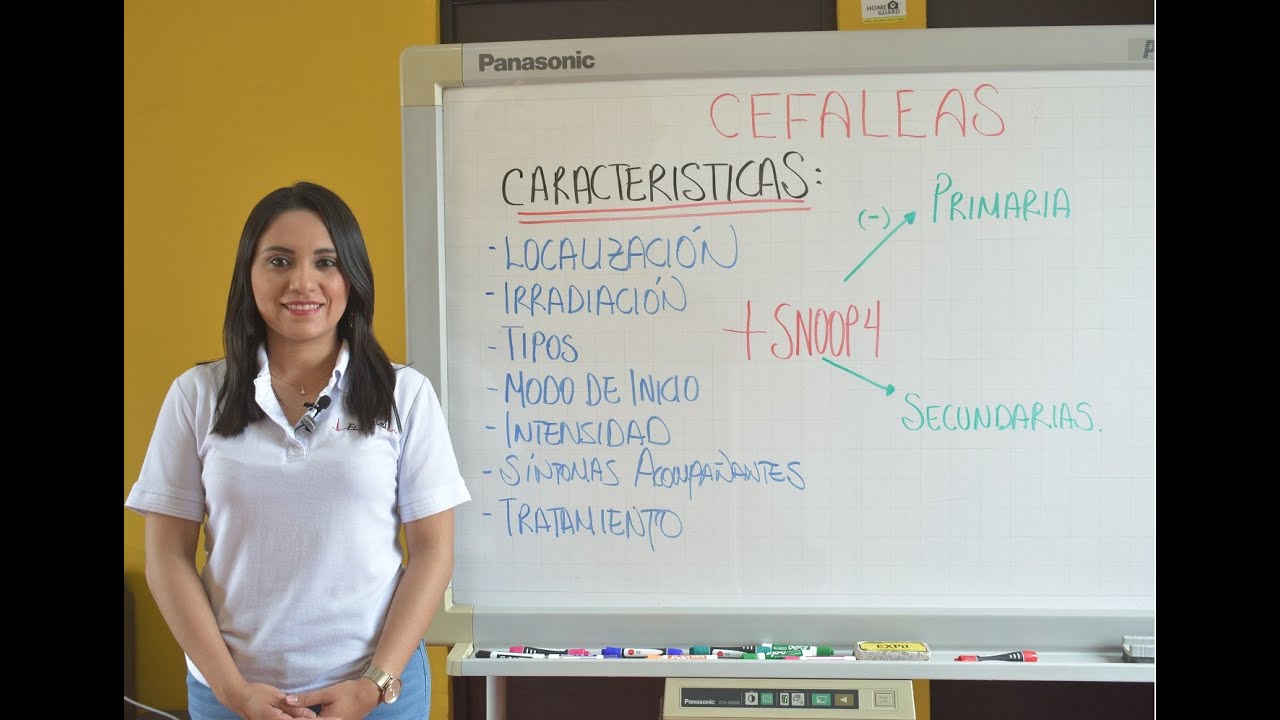 HOME GUARD
Panasonic
CEFALEAS
CARACTERISTICAS:
- LOCALIZACIÓN
- IRRADIACIÓN
- TIPOS
- MODO DE INICIO
- INTENSIDAD
- SÍNTOMAS ACOMPAÑANTES
- TRATAMIENTO
(-) PRIMARIA
+SNOOP4
SECUNDARIAS.
EXPO
Panasonic